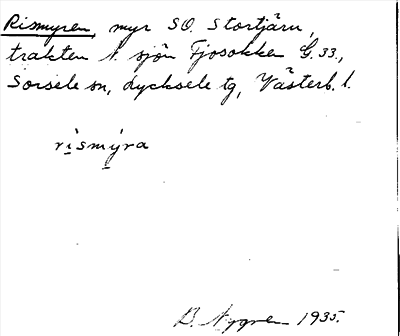 Rismyren, myr SO. Stortjärn,
trakten N. sjön Fjosokken G. 33.,
Sorsele sn, Lycksele tg, Västerb. l.
rismyra
B. Nygren 1935.